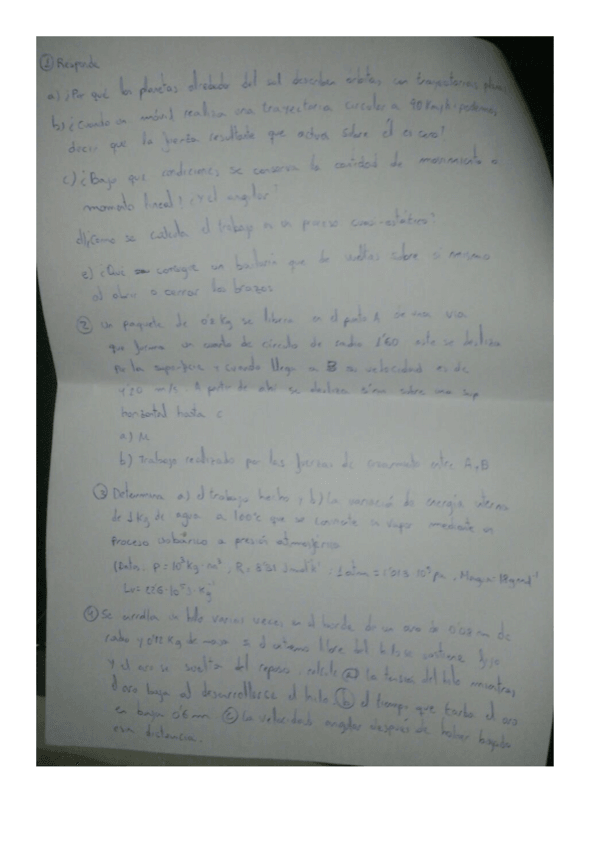 ① Responde
a) ¿Por qué los planetas alrededor del sol describen órbitas con trayectorias planas
b) ¿Cuando un móvil realiza una trayectoria circular a 40 km/h podemos
decir que la fuerza resultante que actua sobre él es cero?
c) ¿Bajo que condiciones se conserva la cantidad de movimiento o
momento lineal? ¿Y el angular?
d) ¿Cómo se calcula el trabajo en un proceso cuasi-estático?
e) ¿Qué consigue un bailarín que da vueltas sobre si mismo
al abrir o cerrar los brazos
② Un paquete de 0'2 kg se libera en el punto A de una vía
que forma un cuarto de círculo de radio 1'60 este se desliza
por la superficie y cuando llega a B su velocidad es de
4'20 m/s. A partir de ahí se desliza 3m sobre una sup
horizontal hasta C
a) M
b) Trabajo realizado por las fuerzas de rozamiento entre A y B
③ Determina a) el trabajo hecho y b) la variación de energía interna
de 1 kg de agua a 100°C que se convierte en vapor mediante un
proceso isobárico a presión atmosférica
(Data: P = 10³ kg·m³, R = 8'31 J mol K, 1 atm = 1'013·10⁵ pa, Magua = 18 g mol⁻¹
Lv = 22'6·10⁵ J·kg⁻¹
④ Se enrolla un hilo varias veces en el borde de un aro de 0'08 m de
radio y 0'12 kg de masa si el extremo libre del hilo se sostiene fijo
y el aro se suelta del reposo, calcule ⓐ la tensión del hilo mientras
el aro baja al desenrollarse el hilo ⓑ el tiempo que tarda el aro
en bajar 0'6 m ⓒ La velocidad angular después de haber bajado
esa distancia.